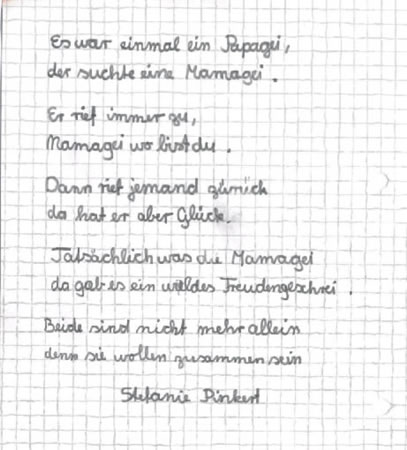 Es war einmal ein Papagei,
der suchte eine Mamagei.
Er rief immer zu,
Mamagei wo bist du.
Dann rief jemand zürück
da hat er aber Glück.
Tatsächlich was die Mamagei
da gab es ein wildes Freudengeschrei.
Beide sind nicht mehr allein
denn sie wollen zusammen sein
Stefanie Pinkert